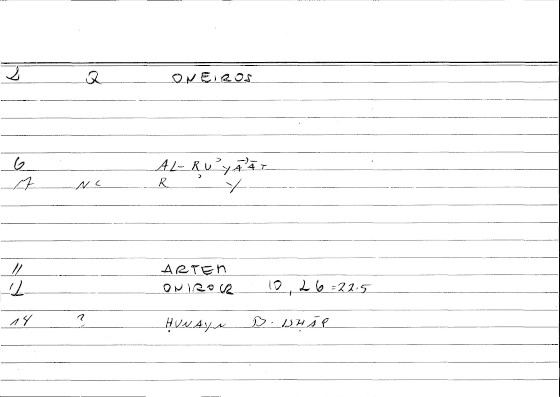 2 Q ONEIROS
6 AL-RU'YĀ'ĀT
17 NC R ' Y
11 ARTEM
12 ONIROCR 10, 26 = 22.5
14 ? ḤUNAYN B.